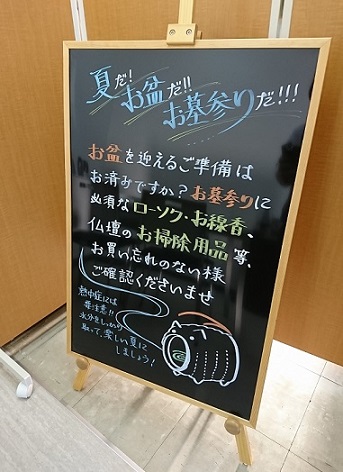 夏だ!お盆だ!!お墓参りだ!!!
お盆を迎えるご準備は
お済みですか?お墓参りに
必須なローソク・お線香、
仏壇のお掃除用品等、
お買い忘れのない様
ご確認くださいませ
熱中症には
要注意!!
水分をしっかり
取って、楽しい夏に
しましょう!